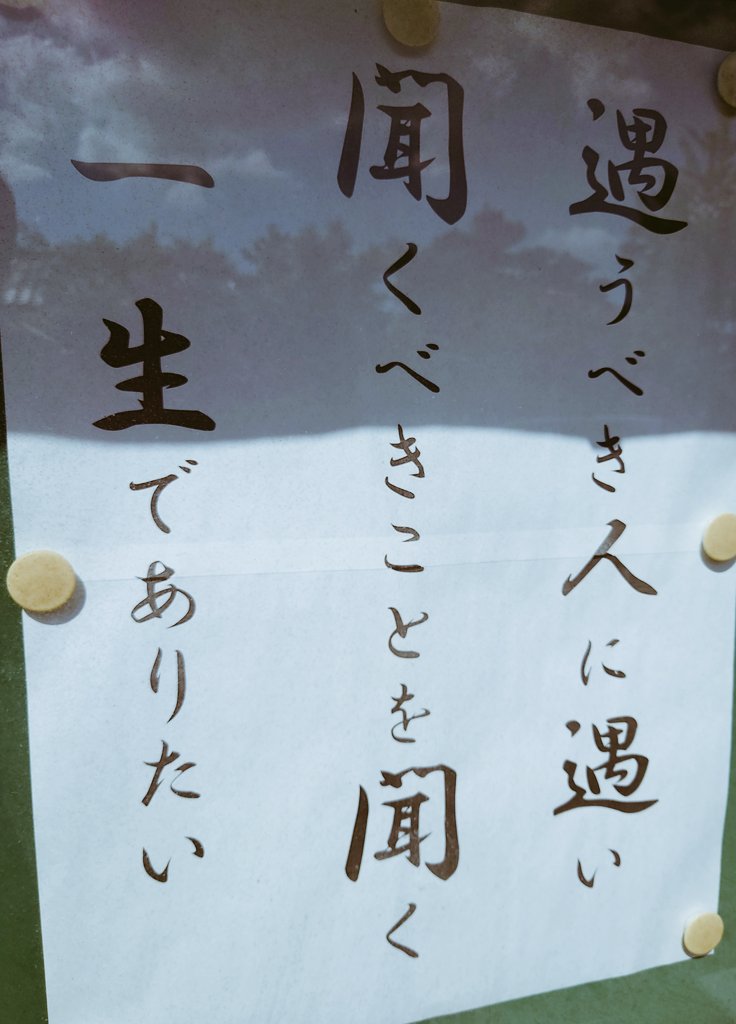 遇うべき人に遇い
聞くべきことを聞く
一生でありたい